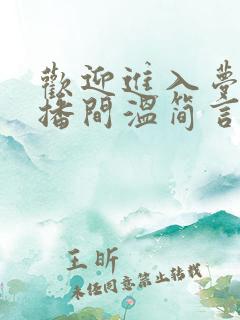 歡迎進入夢
播間溫簡言
王昕
未经同意禁止转载